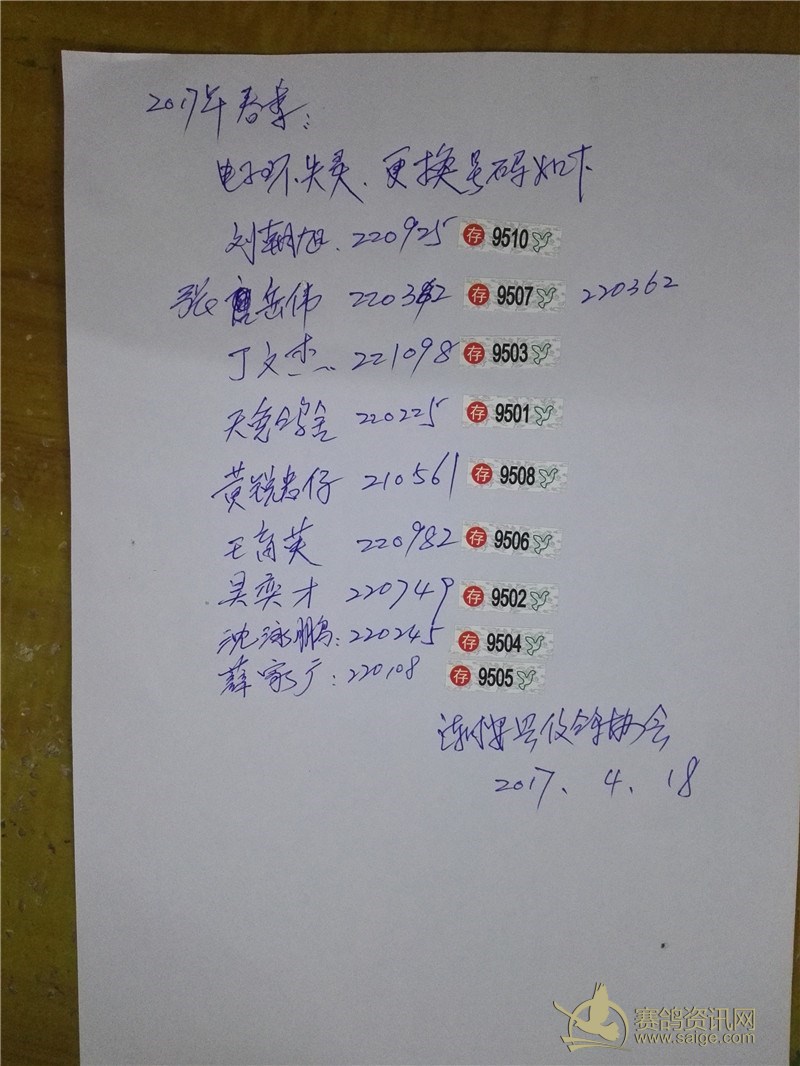 2017年春季:
电子环失灵、更换号码如下
刘朝旭. 220925 存 9510
张岳伟 2203 2 存 9507 220362
丁文杰 221098 存 9503
天 鸽舍 220225 存 9501
黄锐 仔 210561 存 9508
王育英 220982 存 9506
吴奕才 220749 存 9502
沈泳鹏: 220245 存 9504
薛家广: 220108 存 9505
信鸽协会
2017. 4. 18
赛鸽资讯网
www.saige.com